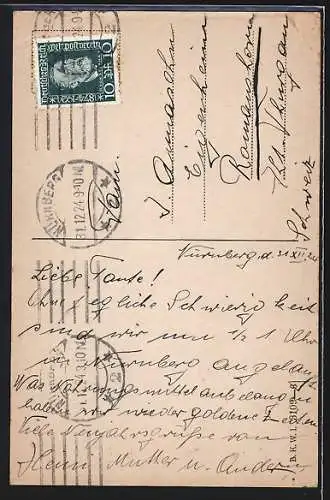 Deutsches Reich
Weltpostverein
10
10
1874 * 1924
NÜRNBERG
31.12.24.9-10 N.
Fam.
J.
Eigenheim
Romanshorn
Kt. Thurgau
Schweiz
Nürnberg, d. 31.XII.24
Liebe Tante!
Ohne jegliche Schwierigkeit
sind wir um ½ 1 Uhr
in Nürnberg angelangt
Was Nahrungsmittel anbelangt
haben wir wieder goldene Zeiten
Viele Neujahrsgrüße von
Heini Mutter u.
B. K. W. I.